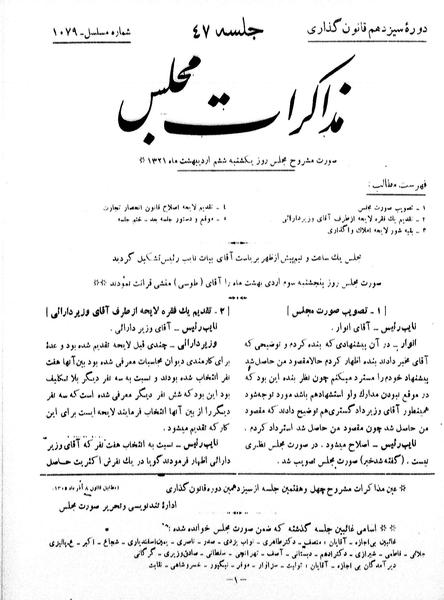 دورهٔ سیزدهم قانون گذاری
جلسه ۴۷
شماره مسلسل - ۱۰۷۹
مذاکرات مجلس
صورت مشروح مجلس روز یکشنبه ششم اردیبهشت ماه ۱۳۲۱ *
فهرست مطالب :
۱ - تصویب صورت مجلس
۲ - تقدیم یك فقره لایحه از طرف آقای وزیر دارائی
۳ - بقیه شور لایحه املاك واگذاری
۴ - تقدیم لایحه اصلاح قانون انحصار تجارت
۵ - موقع و دستور جلسه بعد - ختم جلسه
مجلس یك ساعت و نیم پیش از ظهر بریاست آقای بیات نایب رئیس تشکیل گردید
صورت مجلس روز پنجشنبه سوم اردی بهشت ماه را آقای (طوسی) منشی قرائت نمودند **
[ ۱ - تصویب صورت مجلس ]
نایب رئیس - آقای انوار.
انوار - در آن پیشنهادی که بنده کردم و توضیحی که
آقای مخبر دادند بنده اظهار کردم حالا مقصود من حاصل شد
پیشنهاد خودم را مسترد میکنم چون نظر بنده این بود که
در موقع نبودن مدارك ولو استشهادهم باشد مورد توجه شود
همینطور آقای وزیر دادگستری هم توضیح دادند که مقصود
من حاصل شد چون مقصود من حاصل شد استرداد کردم .
نایب رئیس - اصلاح میشود . در صورت مجلس نظری
نیست (گفته شد خیر) صورت مجلس تصویب شد .
[ ۲ - تقدیم یك فقره لایحه از طرف آقای وزیر دارائی ]
نایب رئیس - آقای وزیر دارائی .
وزیر دارائی - چندی قبل لایحه تقدیم شده بود و عدهٔ
برای کارمندی دیوان محاسبات معرفی شده بود بین آنها هفت
نفر انتخاب شده بودند و نسبت به سه نفر دیگر بلا تکلیف
بود این بود که شش نفر دیگر معرفی شده است که سه نفر
دیگر را از بین آنها انتخاب فرمایند لایحه ایست برای این
کار که تقدیم میشود .
نایب رئیس - نسبت به انتخاب هفت نفر که آقای وزیر
دارائی اظهار فرمودند گویا در یك نفرش اکثریت حاصل
* عین مذاکرات مشروح چهل و هفتمین جلسه از سیزدهمین دوره قانون گذاری
(مطابق قانون ۸ آذر ماه ۱۳۰۵)
اداره تندنویسی و تحریر صورت مجلس
** اسامی غائبین جلسه گذشته که ضمن صورت مجلس خوانده شده :
غائبین بی اجازه - آقایان : منصف - دکتر طاهری - نواب یزدی - ناصری - نصرتیان - یمین اسفندیاری - شجاع - اکبر - ع پالیزی
جلائی - فاطمی - شیرازی - دکتر ادهم - دبستانی - آصف - تهرانچی - سلطانی - صادق وزیری - گرگانی
دیر آمدگان بی اجازه - آقایان : تولیت - سزاوار - موقر - نیکپور - خسروشاهی - نقابت
- ۱ -